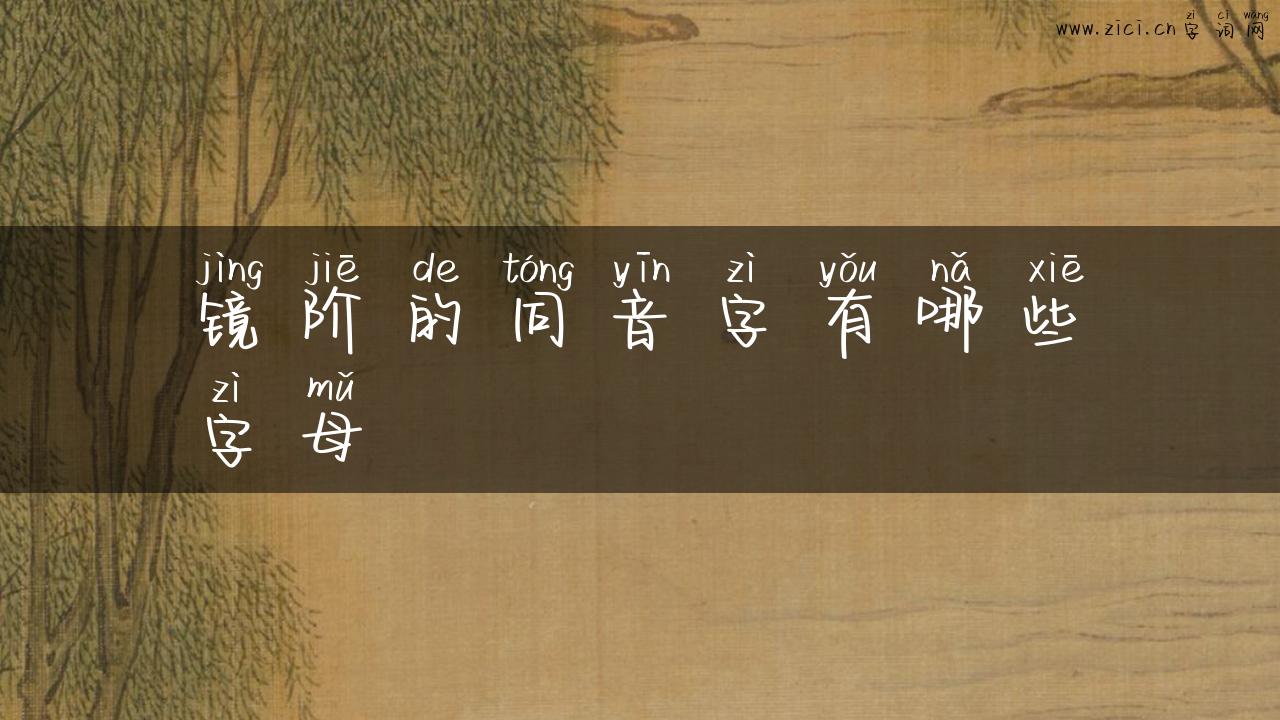 zì cí wǎng
www.zici.cn字词网
jìng jiē de tóng yīn zì yǒu nǎ xiē
镜阶的同音字有哪些
zì mǔ
字母